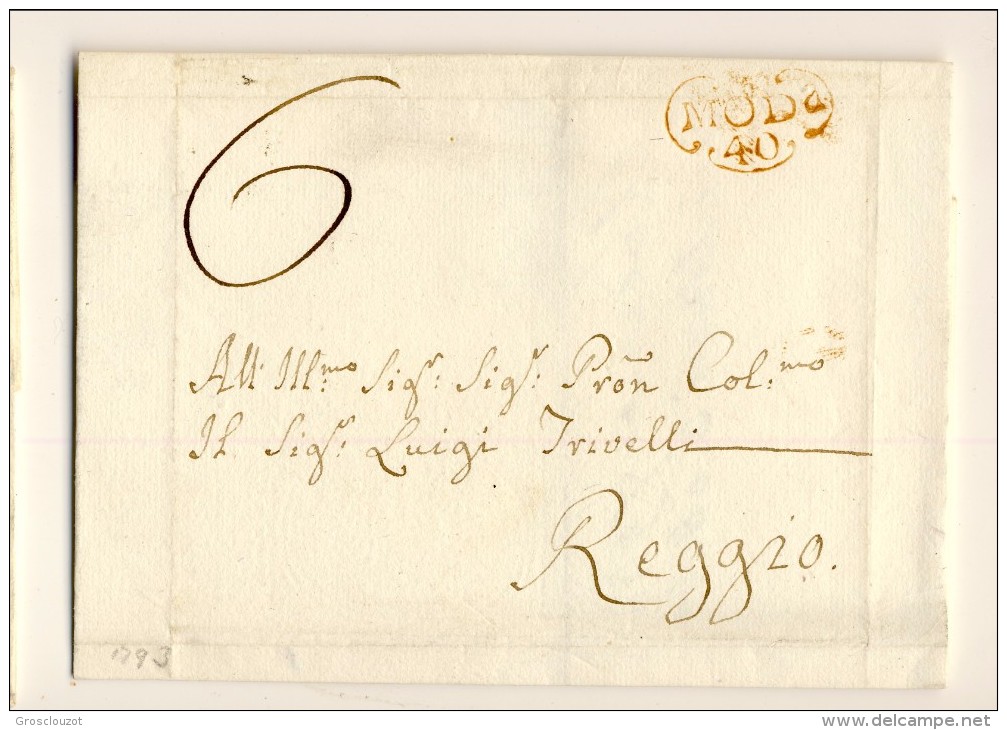 6
MODª
40
All' Illmo Sigr: Sigr: Pron Col:mo
Il Sigr: Luigi Trivelli
Reggio.
1793
Grosclouzot
www.delcampe.net